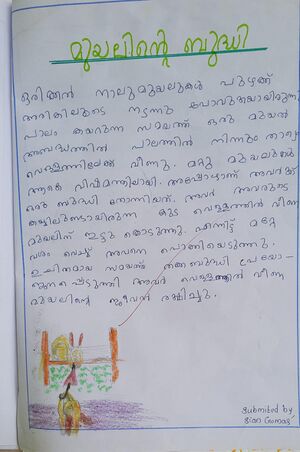 മുയലിന്റെ ബുദ്ധി
ഒരിക്കൽ നാലുമുയലുകൾ പുഴക്ക്
അരികിലൂടെ നടന്നു പോവുകയായിരുന്നു
പാലം കയറുന്ന സമയത്ത് ഒരു മുയൽ
അബദ്ധത്തിൽ പാലത്തിൽ നിന്നും താഴെ
വെള്ളത്തിലേക്ക് വീണു. മറ്റു മുയലുകൾ
ആകെ വിഷമത്തിലായി. അപ്പോഴാണ് അവർക്ക്
ഒരു ബുദ്ധി തോന്നിയത്. അവർ അവരുടെ
കയ്യിലുണ്ടായിരുന്ന കുട വെള്ളത്തിൽ വീണ
മുയലിന് ഇട്ടു കൊടുത്തു. എന്നിട്ട് മറ്റേ
വശം വെച്ച് അവനെ പൊങ്ങിയെടുത്തു.
ഉചിതമായ സമയത്ത് തക്കബുദ്ധി പ്രയോ-
ജനപ്പെടുത്തി അവർ വെള്ളത്തിൽ വീണ
മുയലിന്റെ ജീവൻ രക്ഷിച്ചു.
Submitted by
Sian Gomas